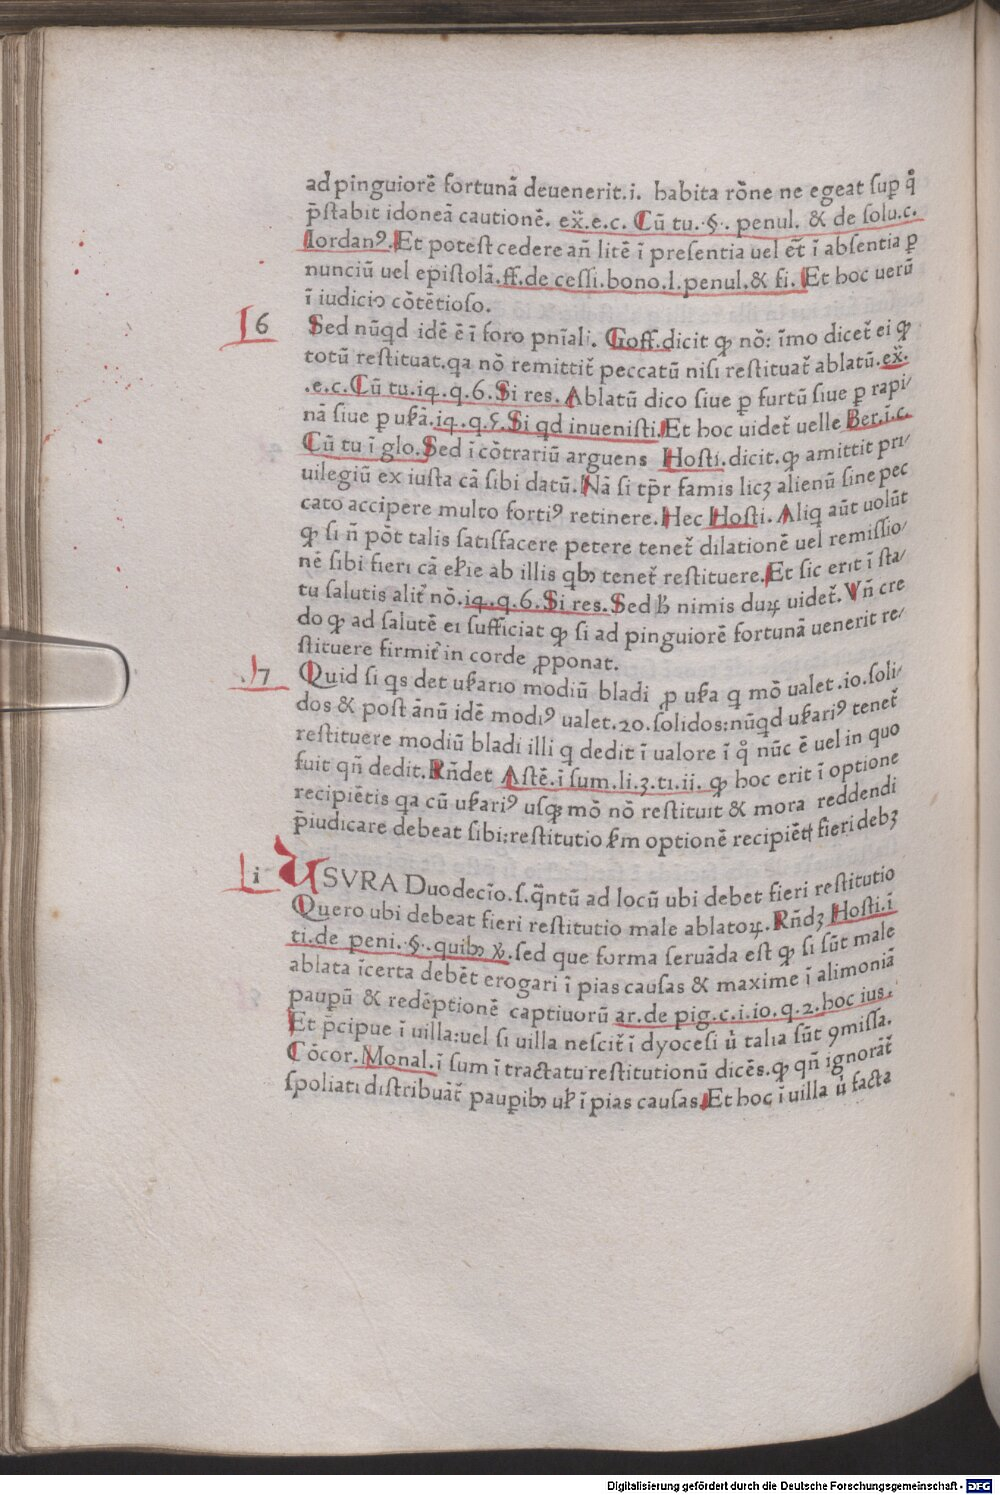 ad pinguiorē fortunā deuenerit.i. habita rōne ne egeat sup̱ qͦ
p̄stabit idoneā cautionē. ex̄.e.c. Cū tu.·§·. penul. & de solu.c.
Iordanꝰ. Et potest cedere añ litē ī presentia uel eť ī absentia ꝑ
nunciū uel epistolā.ff.de cessi.bono.l.penul.& fi. Et hoc uerū
ī iudicio cōtētioso.
6 Sed nūqd idē ē ī foro pnīali. Goff.dicit ꝙ nō: īmo diceť ei ꝙ
totū restituat.qa nō remittiť peccatū nisi restituať ablatū.ex̄.
.e.c.Cū tu.i4.q.6.Si res. Ablatū dico siue ꝑ furtū siue ꝑ rapi/
nā siue ꝑ usꝛā.i4.q.5.Si qd inuenisti. Et hoc uideť uelle Ber.i.c.
Cū tu ī glo. Sed ī cōtrariū arguens Hosti.dicit.ꝙ amittit pri/
uilegiū ex iusta cā sibi datū. Nā si tp̄r famis licꝫ alienū sine pec
cato accipere multo fortiꝰ retinere. Hec Hosti. Aliq aūt uolūt
ꝙ si ñ pōt talis satisfacere petere teneť dilationē uel remissio/
nē sibi fieri cā eł̄ie ab illis qbꝫ teneť restituere. Et sic erit ī sta/
tu salutis aliť nō.i4.q.6.Si res. Sed ħ nimis duꝝ uideť. Vñ cre
do ꝙ ad salutē ei sufficiat ꝙ si ad pinguiorē fortunā uenerit re/
stituere firmiť in corde ꝓponat.
.7 Quid si qs det usꝛario modiū bladi ꝓ usꝛa q mō ualet.10.soli/
dos & post ānū idē modiꝰ ualet.20.solidos:nūqd usꝛariꝰ teneť
restituere modiū bladi illi q dedit ī ualore ī qͦ nūc ē uel in quo
fuit qñ dedit. Rñdet Astē.ī sum.li.3.ti.ii. ꝙ hoc erit ī optione
recipiētis qa cū usꝛariꝰ usqꝫ mō nō restituit & mora reddendi
p̄iudicare debeat sibi:restitutio sꝫm optionē recipiētꝭ fieri debꝫ
i VSVRA Duodecīo.s.q̄ntū ad locū ubi debet fieri restitutio
Quero ubi debeat fieri restitutio male ablatoꝝ. Rñdꝫ Hosti.ī
ti.de peni.·§·.quibꝫ ꝟ. sed que forma seruāda est ꝙ si sūt male
ablata īcerta debēt erogari ī pias causas & maxime ī alimoniā
paupꝑū & redēptionē captiuorū ar.de pig.c.i.10.q.2.hoc ius.
Et p̄cipue ī uilla:uel si uilla nesciť ī dyocesi u̇ talia sūt ꝯmissa.
Cōcor.Monal.ī sum ī tractatu restitutionū dicēs.ꝙ qñ ignorāť
spoliati distribuāť pauꝑibꝫ uł ī pias causas. Et hoc ī uilla u̇ facta
Digitalisierung gefördert durch die Deutsche Forschungsgemeinschaft - DFG